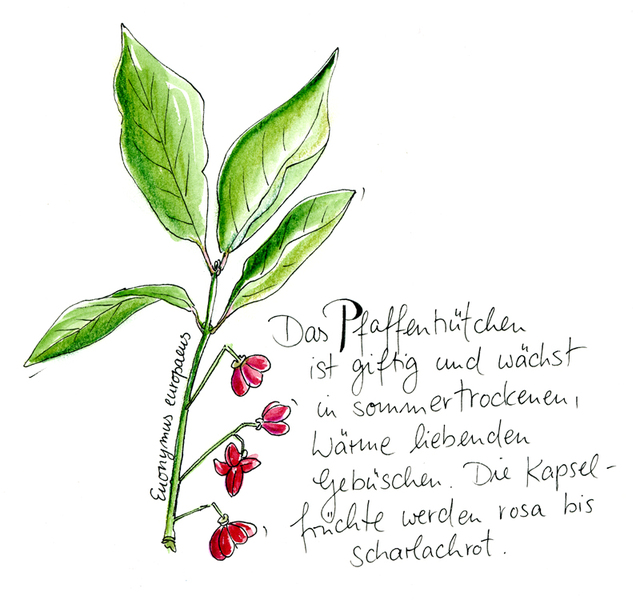 Euonymus europaeus
Das Pfaffenhütchen
ist giftig und wächst
in sommertrockenen,
Wärme liebenden
Gebüschen. Die Kapsel-
früchte werden rosa bis
scharlachrot.